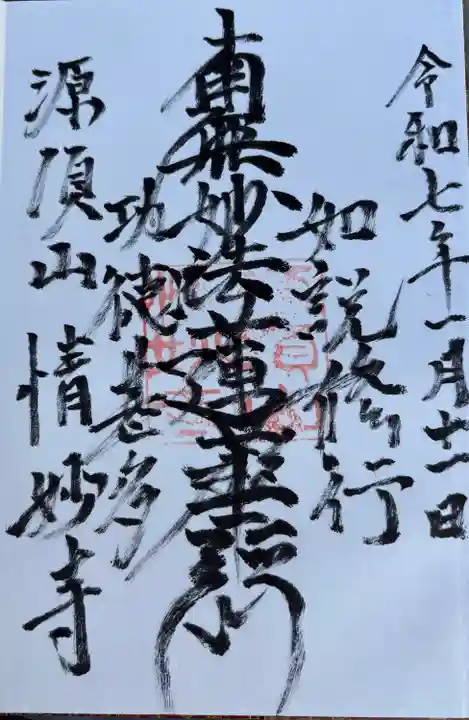 令和七年一月十一日
如説修行
南無妙法蓮華経
功徳甚多
源頂山 情妙寺